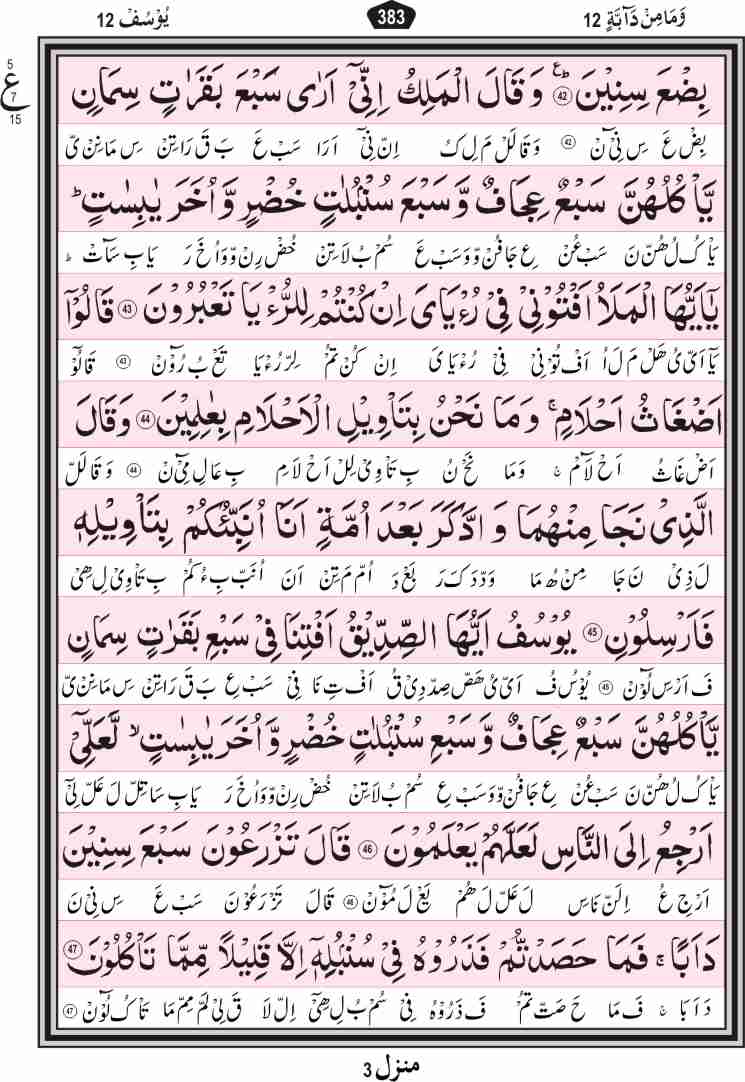 وَمَا مِنْ دَآبَّةٍ 12
383
يُوْسُفْ 12
5
ع
7
15
بِضْعَ سِنِيْنَ ۟ؕ42 وَ قَالَ الْمَلِكُ اِنِّیْۤ اَرٰی سَبْعَ بَقَرٰتٍ سِمَانٍ
بِضْ عَ سِ نِیْٓ نْ 42 وَ قَا لَلْ مَ لِ كُ اِنْ نِیْٓ اَ رَا سَبْ عَ بَ قَ رَا تِنْ سِ مَا نِنْ یْ
یَّاْكُلُهُنَّ سَبْعٌ عِجَافٌ وَّ سَبْعَ سُنْۢبُلٰتٍ خُضْرٍ وَّ اُخَرَ یٰبِسٰتٍ ؕ
یَاْ كُ لُ هُنْ نَ سَبْ عُنْ عِ جَا فُنْ وَ وَ سَبْ عَ سُمْ بُ لَا تِنْ خُضْ رِنْ وَ وَ اُ خَ رَ یَا بِ سَآتْ ؕ
یٰۤاَیُّهَا الْمَلَاُ اَفْتُوْنِیْ فِیْ رُءْیَایَ اِنْ كُنْتُمْ لِلرُّءْیَا تَعْبُرُوْنَ 43 قَالُوْۤا
یَاۤ اَیْ یُ هَلْ مَ لَ اُ اَفْ تُوْ نِیْ فِیْ رُءْ یَا یَ اِنْ كُنْ تُمْ لِرْ رُءْ یَا تَعْ بُ رُوْٓنْ 43 قَا لُوْۤ
اَضْغَاثُ اَحْلَامٍ ۚ وَ مَا نَحْنُ بِتَاْوِیْلِ الْاَحْلَامِ بِعٰلِمِیْنَ 44 وَ قَالَ
اَضْ غَا ثُ اَحْ لَآمْ ۚ وَ مَا نَحْ نُ بِ تَاْ وِیْ لِلْ اَحْ لَا مِ بِ عَا لِ مِیْٓ نْ 44 وَ قَا لَلْ
الَّذِیْ نَجَا مِنْهُمَا وَ ادَّكَرَ بَعْدَ اُمَّةٍ اَنَا اُنَبِّئُكُمْ بِتَاْوِیْلِهٖ
لَ ذِیْ نَ جَا مِنْ هُ مَا وَدْ دَ كَ رَ بَعْ دَ اُمْ مَ تِنْ اَ نَ اُ نَبْ بِ ءُ كُمْ بِ تَاْ وِیْ لِ هِیْ
فَاَرْسِلُوْنِ 45 یُوْسُفُ اَیُّهَا الصِّدِّیْقُ اَفْتِنَا فِیْ سَبْعِ بَقَرٰتٍ سِمَانٍ
فَ اَرْ سِ لُوْٓنْ 45 یُوْ سُ فُ اَیْ یُ هَصْ صِدْ دِیْ قُ اَفْ تِ نَا فِیْ سَبْ عِ بَ قَ رَا تِنْ سِ مَا نِنْ یْ
یَّاْكُلُهُنَّ سَبْعٌ عِجَافٌ وَّ سَبْعِ سُنْۢبُلٰتٍ خُضْرٍ وَّ اُخَرَ یٰبِسٰتٍ ۙ لَّعَلِّیْۤ
یَاْ كُ لُ هُنْ نَ سَبْ عُنْ عِ جَا فُنْ وَ وَ سَبْ عِ سُمْ بُ لَا تِنْ خُضْ رِنْ وَ وَ اُ خَ رَ یَا بِ سَا تِلْ لَ عَلْ لِیْٓ
اَرْجِعُ اِلَی النَّاسِ لَعَلَّهُمْ یَعْلَمُوْنَ 46 قَالَ تَزْرَعُوْنَ سَبْعَ سِنِیْنَ
اَرْ جِ عُ اِ لَنْ نَا سِ لَ عَلْ لَ هُمْ یَعْ لَ مُوْٓنْ 46 قَا لَ تَزْ رَ عُوْ نَ سَبْ عَ سِ نِیْ نَ
دَاَبًا ۚ فَمَا حَصَدْتُّمْ فَذَرُوْهُ فِیْ سُنْۢبُلِهٖۤ اِلَّا قَلِیْلًا مِّمَّا تَاْكُلُوْنَ 47
دَ اَ بَا ۚ فَ مَا حَ صَتْ تُمْ فَ ذَ رُوْ هُ فِیْ سُمْ بُ لِ هِیْٓ اِلْ لَا قَ لِیْ لَمْ مِمْ مَا تَاْ كُ لُوْٓنْ 47
منزل 3